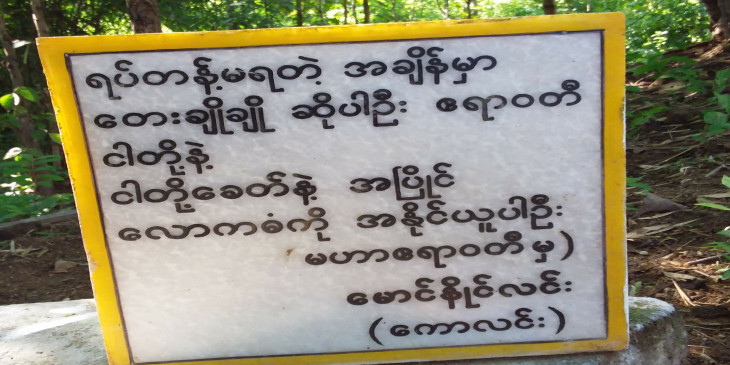 ရပ်တန့်မရတဲ့ အချိန်မှာ
တေးချိုချို ဆိုပါဦး ဧရာဝတီ
ငါတို့နဲ့
ငါတို့ခေတ်နဲ့ အပြိုင်
လောကဓံကို အနိုင်ယူပါဦး
မဟာဧရာဝတီမှ)
မောင်နိုင်လင်း
(ကောလင်း)